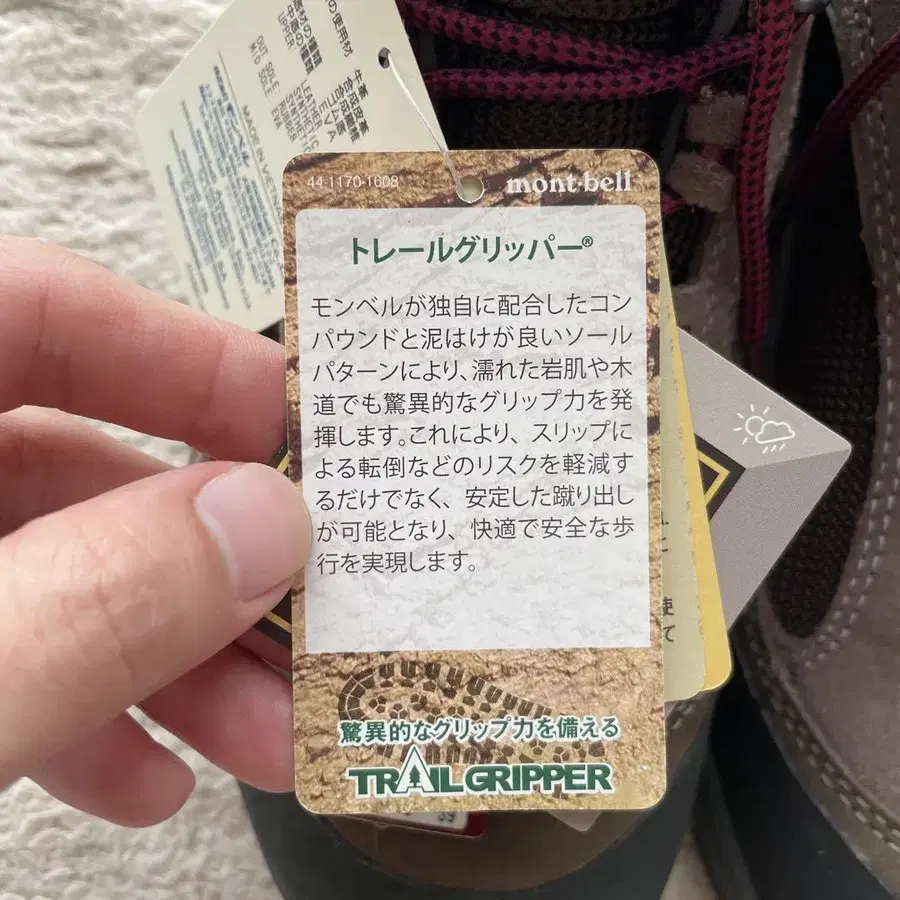 44-1170-1608
mont-bell
トレールグリッパー®
モンベルが独自に配合したコン
パウンドと泥はけが良いソール
パターンにより、濡れた岩肌や木
道でも驚異的なグリップ力を発
揮します。これにより、スリップに
よる転倒などのリスクを軽減す
るだけでなく、安定した蹴り出し
が可能となり、快適で安全な歩
行を実現します。
驚異的なグリップ力を備える
TRAIL GRIPPER
の使用材
UPPER
OUT SOLE
MID SOLE
牛革
合成皮革
合成繊維
合成ゴム底
EVA
LEATHER
SYNTHETIC
RUBBER
EVA
MADE IN VIET
に
使
て